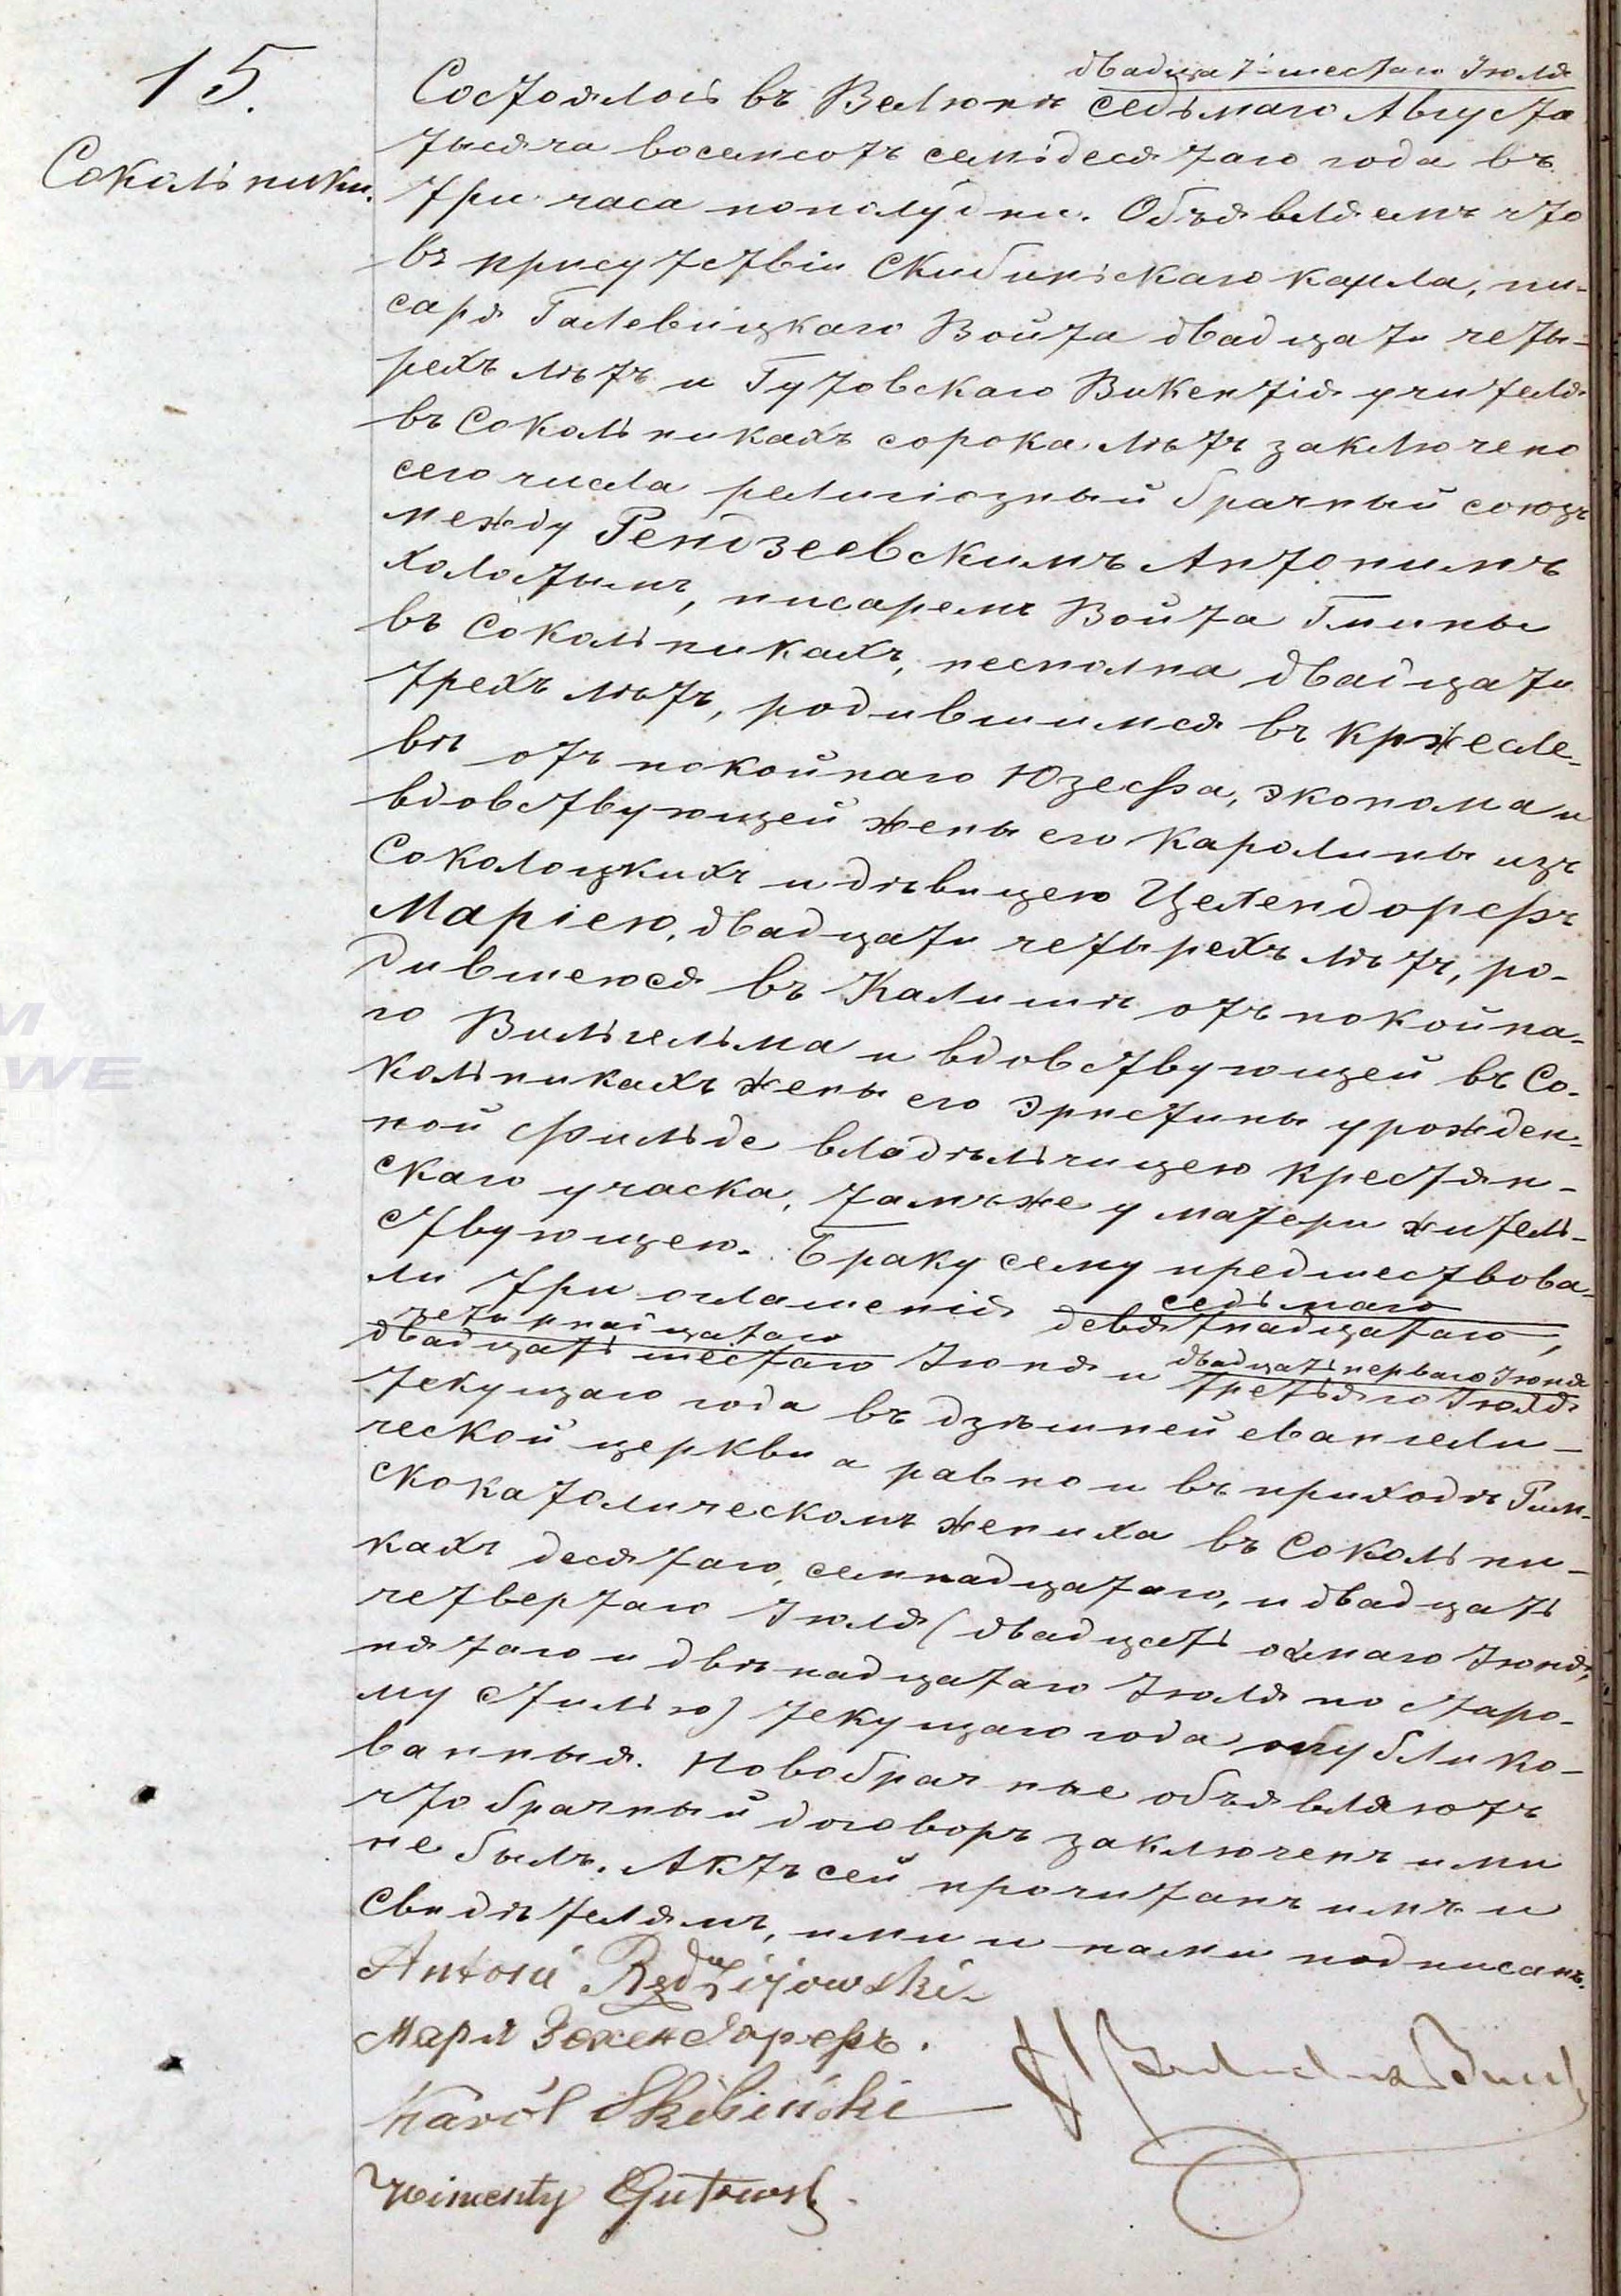 15.
Сокольники.
двадцать шестаго Іюля
Состоялось въ Велюнѣ седьмаго Августа
тысяча восемсотъ семьдесятаго года въ
три часа пополудни. Объявляемъ что
въ присутствіи Скибинскаго Карла, пи-
саря Галевицкаго Войта двадцати четы-
рехъ лѣтъ и Гутовскаго Викентія учителя
въ Сокольникахъ сорока лѣтъ заключено
сего числа религіозный брачный союзъ
между Рендзеевскимъ Антонимъ
холостымъ, писаремъ Войта Гмины
въ Сокольникахъ, несполна двадцати
трехъ лѣтъ, родившимся въ Кржесле-
вѣ отъ покойнаго Юзефа, эконома и
вдовствующей жены его Каролины изъ
Соколоцкихъ и дѣвицею Цехендорфъ
Маріею, двадцати четырехъ лѣтъ, ро-
дившеюся въ Калишѣ отъ покойна-
го Вильгельма и вдовствующей въ Со-
кольникахъ жены его Эрнстины урожден-
ной Фильде владѣльчицею крестян-
скаго учаска, тамъже у матери житель-
ствующею. Браку сему предшествова-
седьмаго
ли три оглашенія девятнадцатаго,
четырнайцатаго
двадцать первого Іюня
двадцать шестаго Іюня и третьяго Іюля
текущаго года въ дзѣшней евангели-
ческой церкви а равно и въ приходѣ Рим-
скокатолическомъ жениха въ Сокольни-
кахъ десятаго, семнадцатаго, и двадцать
четвертаго Іюля (двадцать осмаго Іюня,
пятаго и двѣнадцатаго Іюля по старо-
му стилью) текущаго года опублико-
ванныя. Новобрачные объявляютъ
что брачный договоръ заключенъ ими
не былъ. Актъ сей прочитанъ имъ и
Свидѣтелямъ, ими и нами подписанъ.
Antoni Rędziejowski
Маря Зехендарфъ.
Karól Skibiński
Wincenty Gutowski